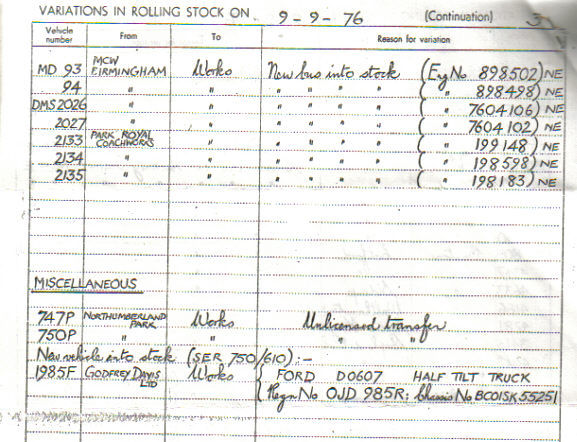 VARIATIONS IN ROLLING STOCK ON 9-9-76 (Continuation) 3
Vehicle number From To Reason for variation
MD 93 MCW BIRMINGHAM Works New bus into stock (Eng No 898502) NE
94 " " " " " " ( " 898498) NE
DMS2026 " " " " " " ( " 7604106) NE
2027 " " " " " " ( " 7604102) NE
2133 PARK ROYAL COACHWORKS " " " " " ( " 199148) NE
2134 " " " " " " ( " 198598) NE
2135 " " " " " " ( " 198183) NE
MISCELLANEOUS
747P NORTHUMBERLAND PARK Works Unlicensed transfer
750P " " " "
New vehicle into stock (SER 750/610):-
1985F GODFREY DAVIS LTD Works { FORD D0607 HALF TILT TRUCK
Regn No OJD 985R; Chassis No BC01SK55251